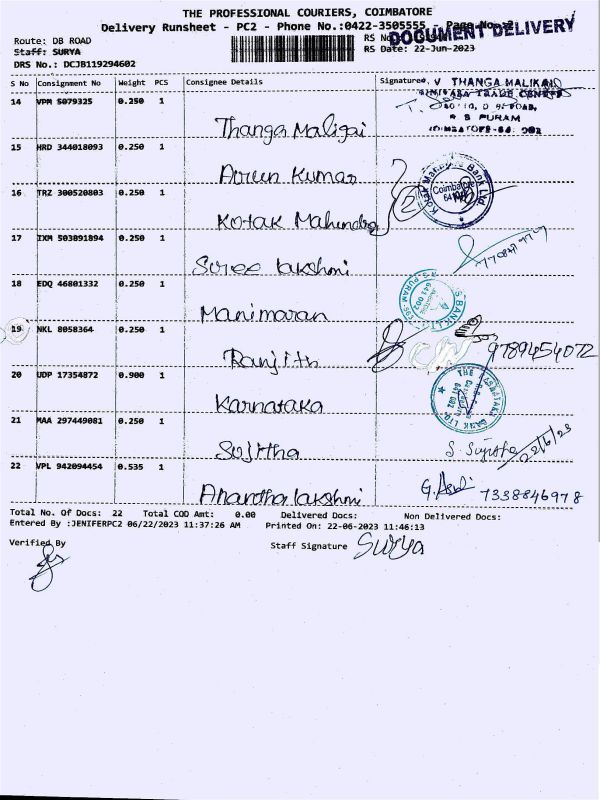 THE PROFESSIONAL COURIERS, COIMBATORE
Delivery Runsheet - PC2 - Phone No.:0422-3505555 Page No.:2
DOCUMENT DELIVERY
Route: DB ROAD
RS No
Staff: SURYA
RS Date: 22-Jun-2023
DRS No.: DCJB119294602
S No Consignment No Weight PCS Consignee Details Signature
V THANGA MALIKAI
14 VPM 5079325 0.250 1 Thanga Maligai
R S PURAM
15 HRD 344018093 0.250 1 Arun Kumar
16 TRZ 300520803 0.250 1 Kotak Mahindra
Kotak Mahindra Bank Ltd.
Coimbatore
17 IXM 503891894 0.250 1 Sree lakshmi
18 EDQ 46801332 0.250 1 Manimaran
19 NKL 8058364 0.250 1 Ranjith 9789454072
20 UDP 17354872 0.900 1 Karnataka
THE KARNATAKA BANK LTD.
21 MAA 297449081 0.250 1 Sujitha S. Sujitha 22/6/23
22 VPL 942094454 0.535 1 Anantha lakshmi 7338846978
Total No. Of Docs: 22 Total COD Amt: 0.00 Delivered Docs: Non Delivered Docs:
Entered By :JENIFERPC2 06/22/2023 11:37:26 AM Printed On: 22-06-2023 11:46:13
Verified By
Staff Signature Surya